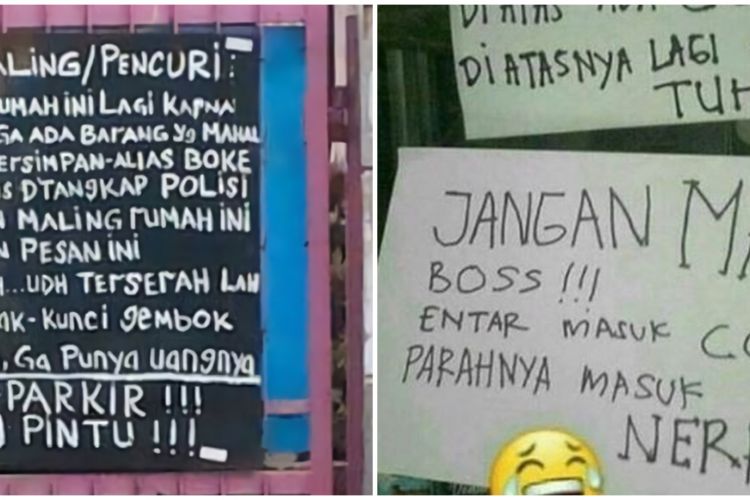 ALING/PENCURI:
UMAH INI LAGI KARNA
GA ADA BARANG Yg MAHAL
ERSIMPAN-ALIAS BOKE
S DTANGKAP POLISI
MALING rUMAH INI
N PESAN INI
...UDH TERSERAH LAH
AK-KUNCI gEMBOK
, Ga Punya uangnya
PARKIR !!!
PINTU !!!
DI ATAS
DI ATASNYA LAGI
TUH
JANGAN MA
BOSS !!!
ENTAR MASUK CO
PARAHNYA MASUK
NERA